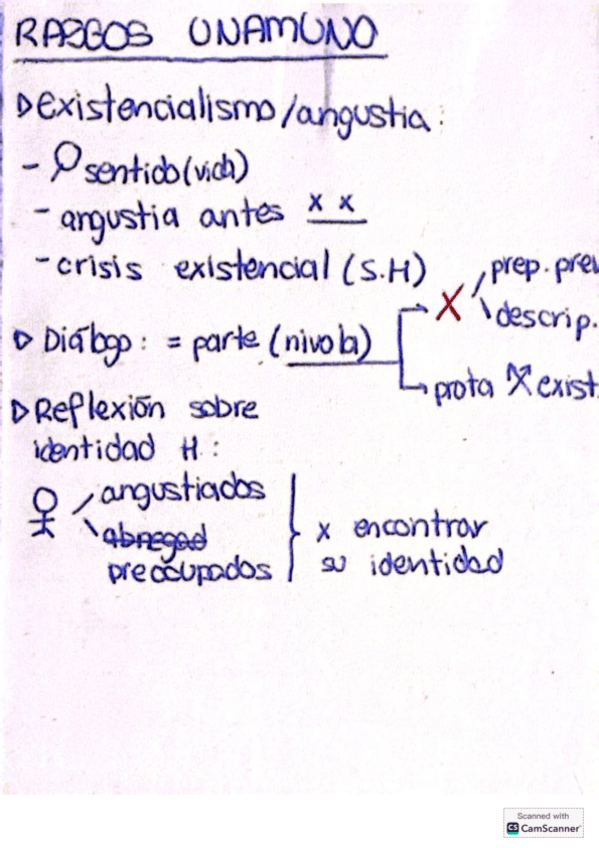 RASGOS UNAMUNO
▷ Existencialismo/angustia:
- sentido (vida)
- angustia antes x x
- crisis existencial (S.H)
prep. prev
X descrip.
▷ Diálogo: = parte (nivola)
prota X exist.
▷ Reflexión sobre
identidad H:
angustiados
abnegad
preocupados
x encontrar
su identidad
Scanned with
CS CamScanner